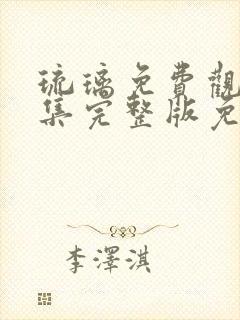 琉璃免費觀
集完整版免
李澤淇